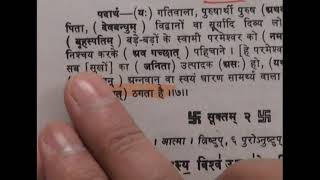 पदार्थ—(यः) गतिवाला, पुरुषार्थी पुरुष (अथ
पिता, (देवबन्धुम्) विद्वानों वा सूर्यादि दिव्य लो
(बृहस्पतिम्) बड़े-बड़ों के स्वामी परमेश्वर को (नम
निश्चय करके (अव गच्छात्) पहिचाने। [हे परमे
सब [सुखों] का (जनिता) उत्पादक (असः) हो, (
अन्नवान् वा स्वयं धारण सामर्थ्य वाला
ठगता है॥७॥
सूक्तम् २
आत्मा। त्रिष्टुप्, ६ पुरोऽनुष्टुप्
विश्व